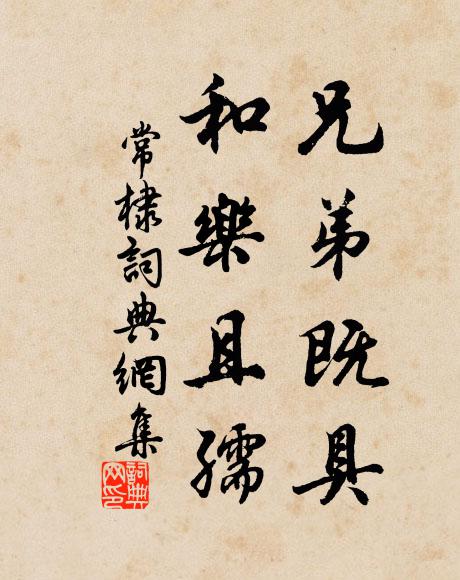 兄弟既具
和樂且孺
常棣詞典網集
詞典网印